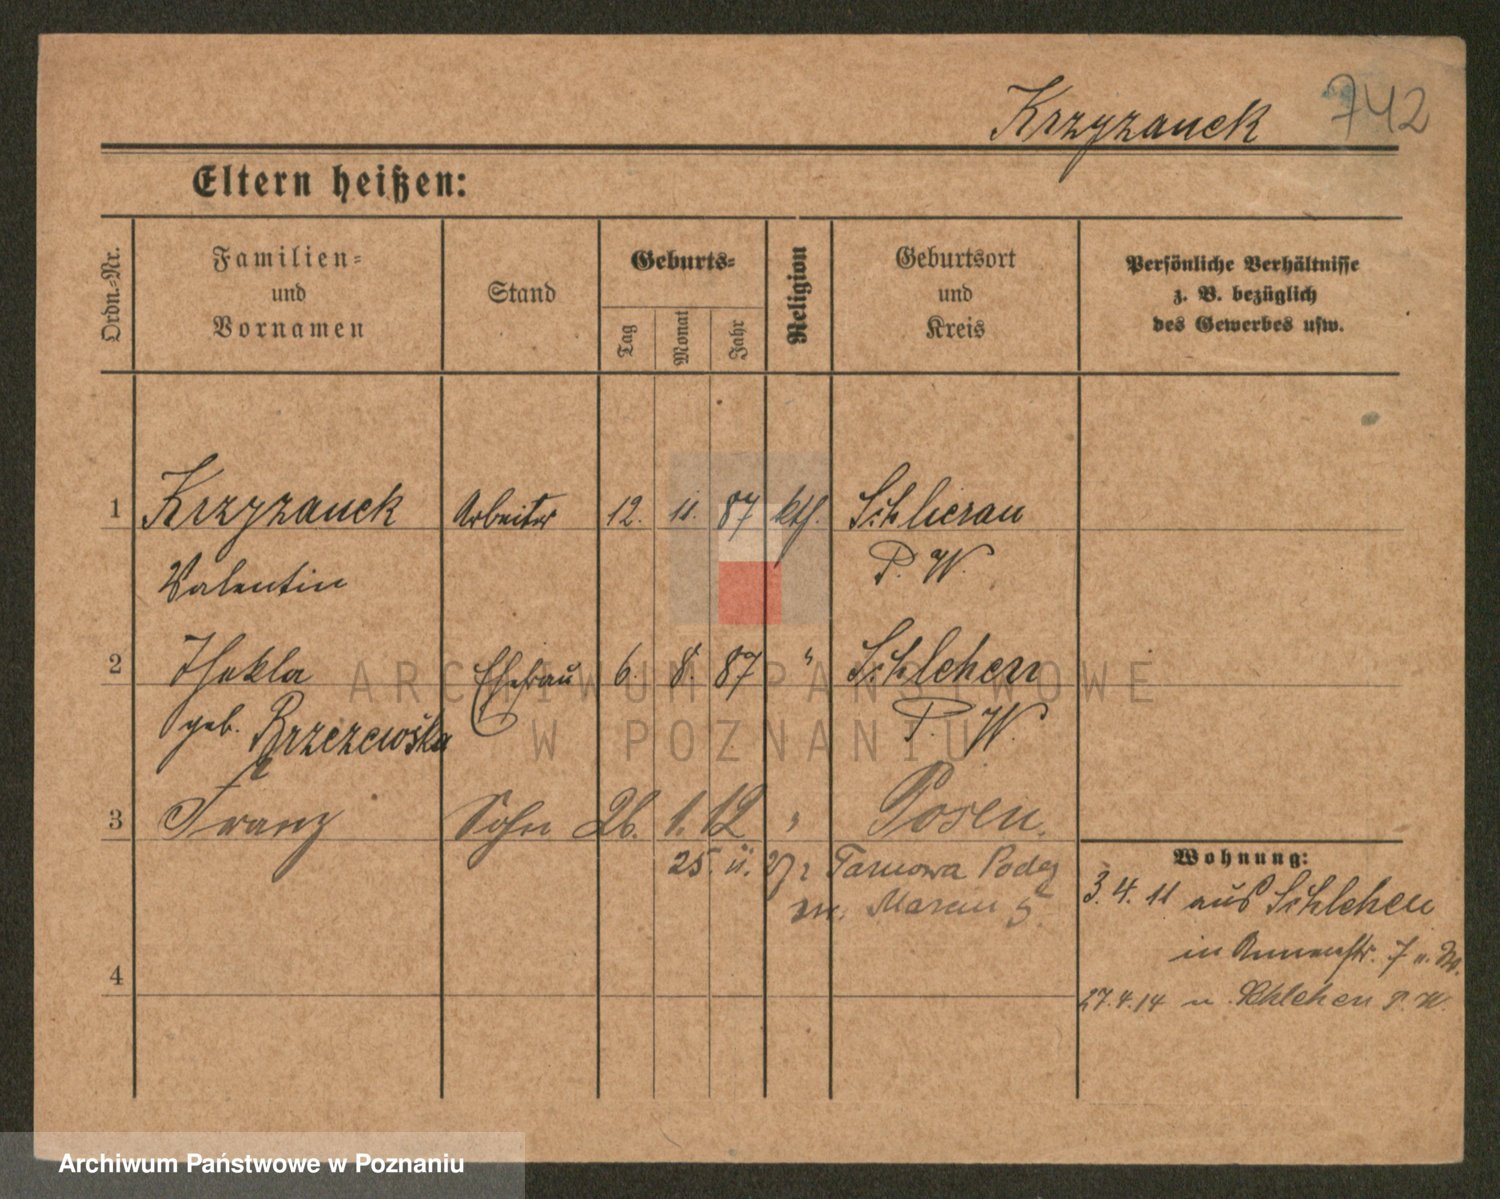 Krzyzanek 742
Eltern heißen:
Ordn.-Nr.
Familien-
und
Vornamen
Stand
Geburts-
Tag
Monat
Jahr
Religion
Geburtsort
und
Kreis
Persönliche Verhältnisse
z. B. bezüglich
des Gewerbes usw.
1 Krzyzanek Arbeiter 12. 11. 87 kth.
P. W.
Valentin
2 Thekla Ehefrau 6. 8. 87 " Schlehen
geb. Brzezewska P. W.
3 Franz Sohn 26. 1. 12 " Posen.
25. Tarnowa Podg
4
Wohnung:
3. 4. 11 aus Schlehen
in 7
27.4.14 n. Schlehen P. W.
ARCHIWUM PAŃSTWOWE
W POZNANIU
Archiwum Państwowe w Poznaniu